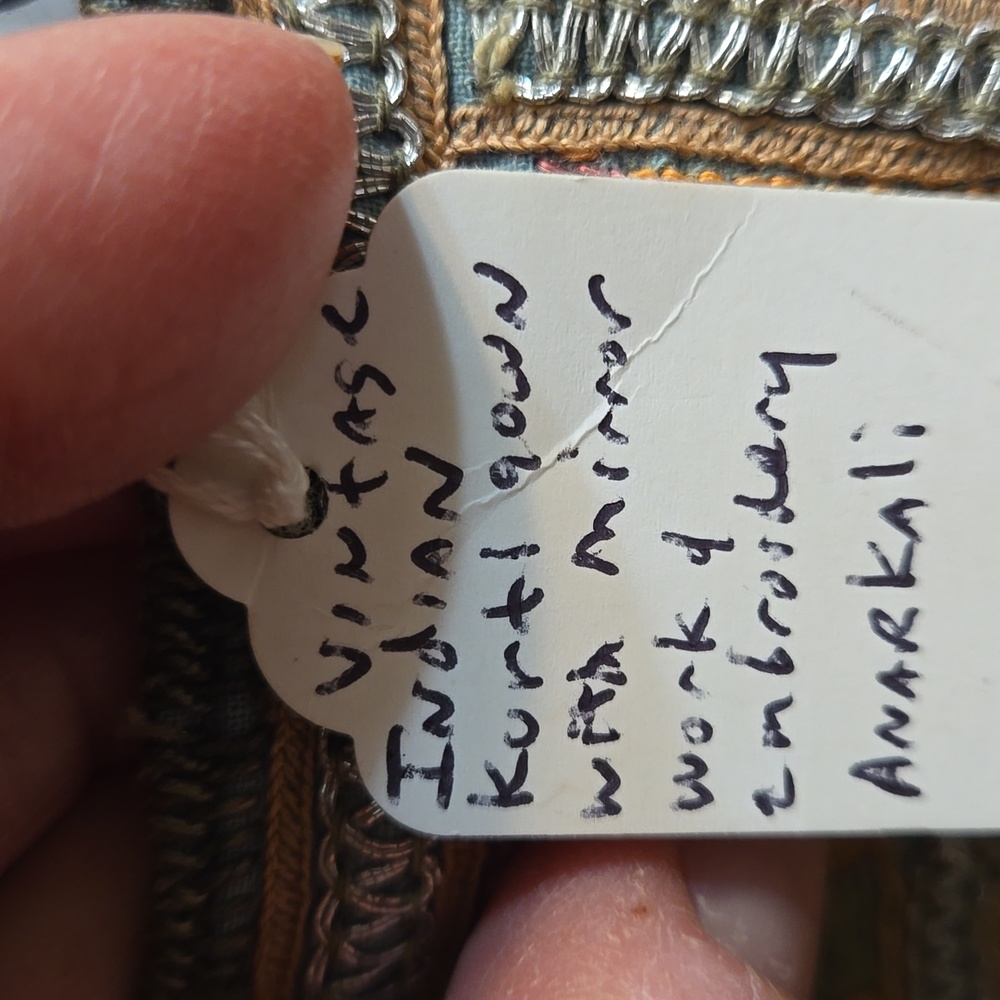 VINTAGE
INdIAN
Kurti gown
with mirror
work &
embroidery
ANARKALi